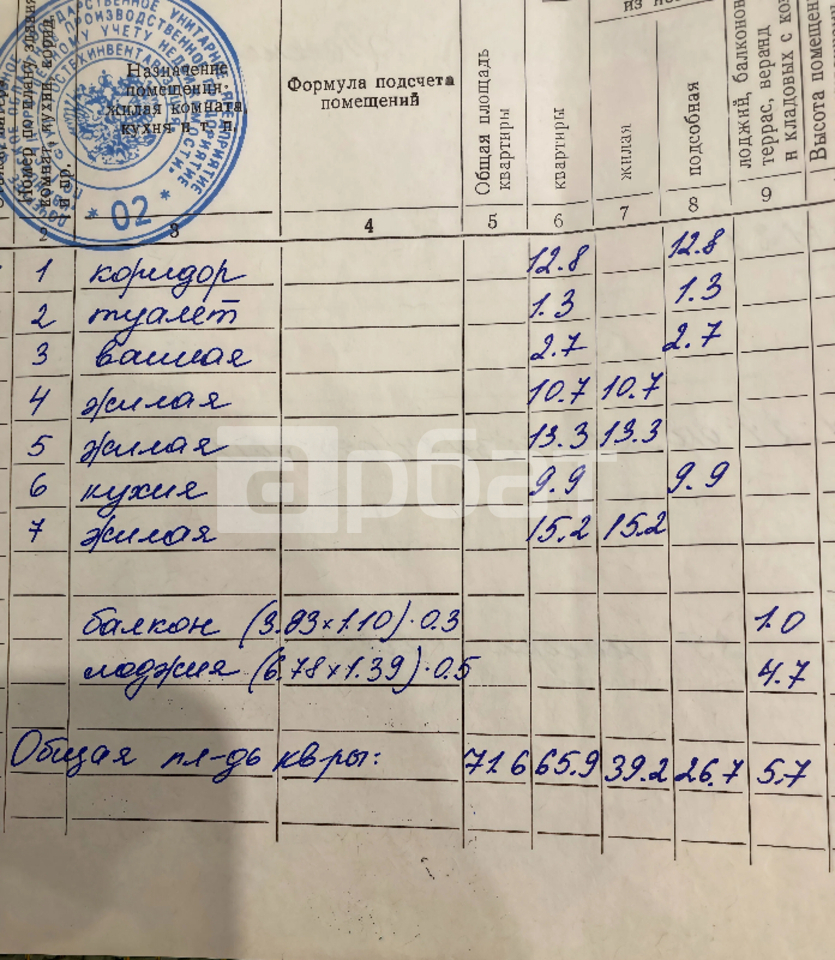 из
Номер по плану здания
комнат, кухни, корид.
и пр.
Назначение
помещения:
жилая комната
кухня и т. п.
Формула подсчета
помещений
Общая площадь
квартиры
квартиры
жилая
подсобная
лоджий, балконов
террас, веранд
и кладовых с
Высота помещен
* 02 *
2 3 4 5 6 7 8 9
1 коридор 12.8 12.8
2 туалет 1.3 1.3
3 ванная 2.7 2.7
4 жилая 10.7 10.7
5 жилая 13.3 13.3
6 кухня 9.9 9.9
7 жилая 15.2 15.2
балкон (3.03×1.10)·0.3 1.0
лоджия (6.78×1.39)·0.5 4.7
Общая пл-дь кв-ры: 71.6 65.9 39.2 26.7 5.7
арбат